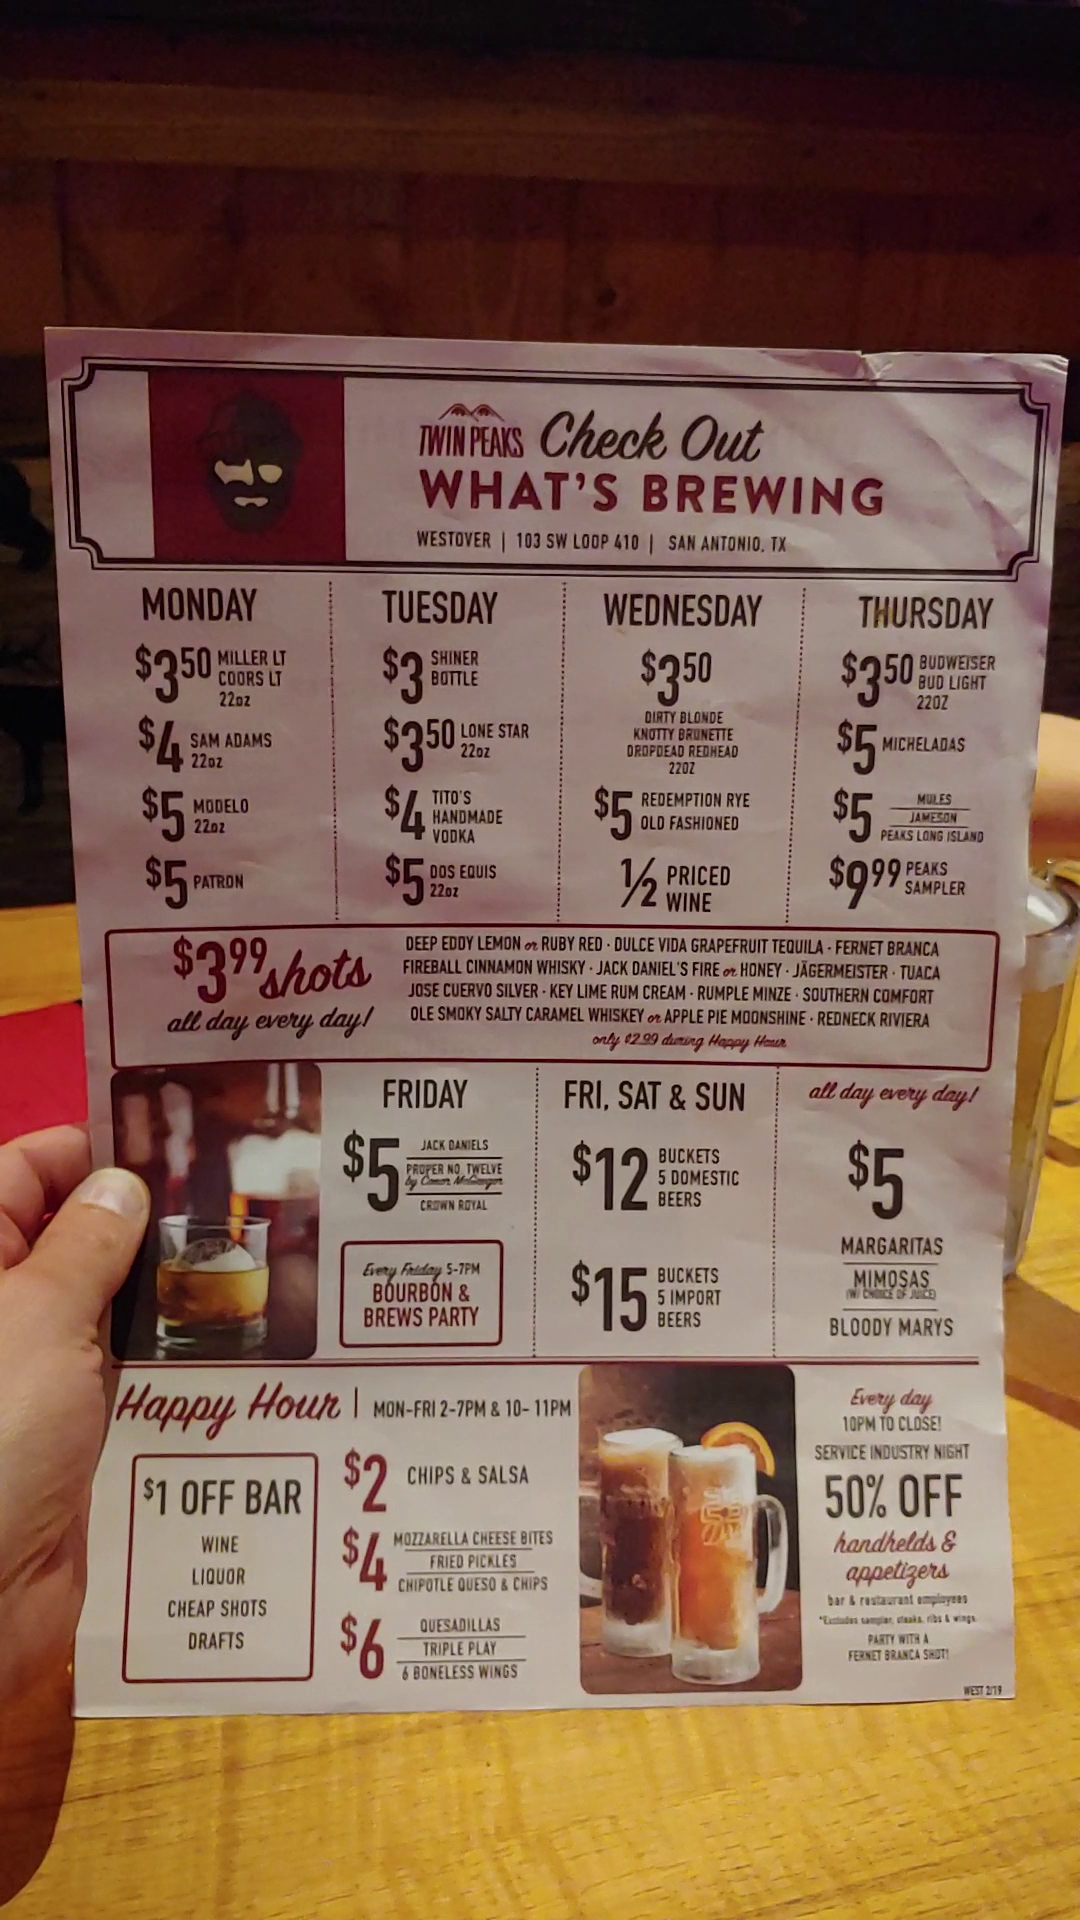 TWIN PEAKS Check Out
WHAT'S BREWING
WESTOVER | 103 SW LOOP 410 | SAN ANTONIO, TX
MONDAY
$3.50 MILLER LT
COORS LT
22oz
$4 SAM ADAMS
22oz
$5 MODELO
22oz
$5 PATRON
TUESDAY
$3 SHINER
BOTTLE
$3.50 LONE STAR
22oz
$4 TITO'S
HANDMADE
VODKA
$5 DOS EQUIS
22oz
WEDNESDAY
$3.50
DIRTY BLONDE
KNOTTY BRUNETTE
DROPDEAD REDHEAD
22OZ
$5 REDEMPTION RYE
OLD FASHIONED
1/2 PRICED
WINE
THURSDAY
$3.50 BUDWEISER
BUD LIGHT
22OZ
$5 MICHELADAS
$5 MULES
JAMESON
PEAKS LONG ISLAND
$9.99 PEAKS
SAMPLER
$3.99 shots
all day every day!
DEEP EDDY LEMON or RUBY RED · DULCE VIDA GRAPEFRUIT TEQUILA · FERNET BRANCA
FIREBALL CINNAMON WHISKY · JACK DANIEL'S FIRE or HONEY · JÄGERMEISTER · TUACA
JOSE CUERVO SILVER · KEY LIME RUM CREAM · RUMPLE MINZE · SOUTHERN COMFORT
OLE SMOKY SALTY CARAMEL WHISKEY or APPLE PIE MOONSHINE · REDNECK RIVIERA
only $2.99 during Happy Hour
FRIDAY
$5 JACK DANIELS
PROPER NO. TWELVE
by Conor McGregor
CROWN ROYAL
Every Friday 5-7PM
BOURBON &
BREWS PARTY
FRI, SAT & SUN
$12 BUCKETS
5 DOMESTIC
BEERS
$15 BUCKETS
5 IMPORT
BEERS
all day every day!
$5
MARGARITAS
MIMOSAS
(W/ CHOICE OF JUICE)
BLOODY MARYS
Happy Hour | MON-FRI 2-7PM & 10-11PM
$1 OFF BAR
WINE
LIQUOR
CHEAP SHOTS
DRAFTS
$2 CHIPS & SALSA
$4 MOZZARELLA CHEESE BITES
FRIED PICKLES
CHIPOTLE QUESO & CHIPS
$6 QUESADILLAS
TRIPLE PLAY
6 BONELESS WINGS
Every day
10PM TO CLOSE!
SERVICE INDUSTRY NIGHT
50% OFF
handhelds &
appetizers
bar & restaurant employees
*Excludes sampler, steaks, ribs & wings
PARTY WITH A
FERNET BRANCA SHOT!
WEST 2/19